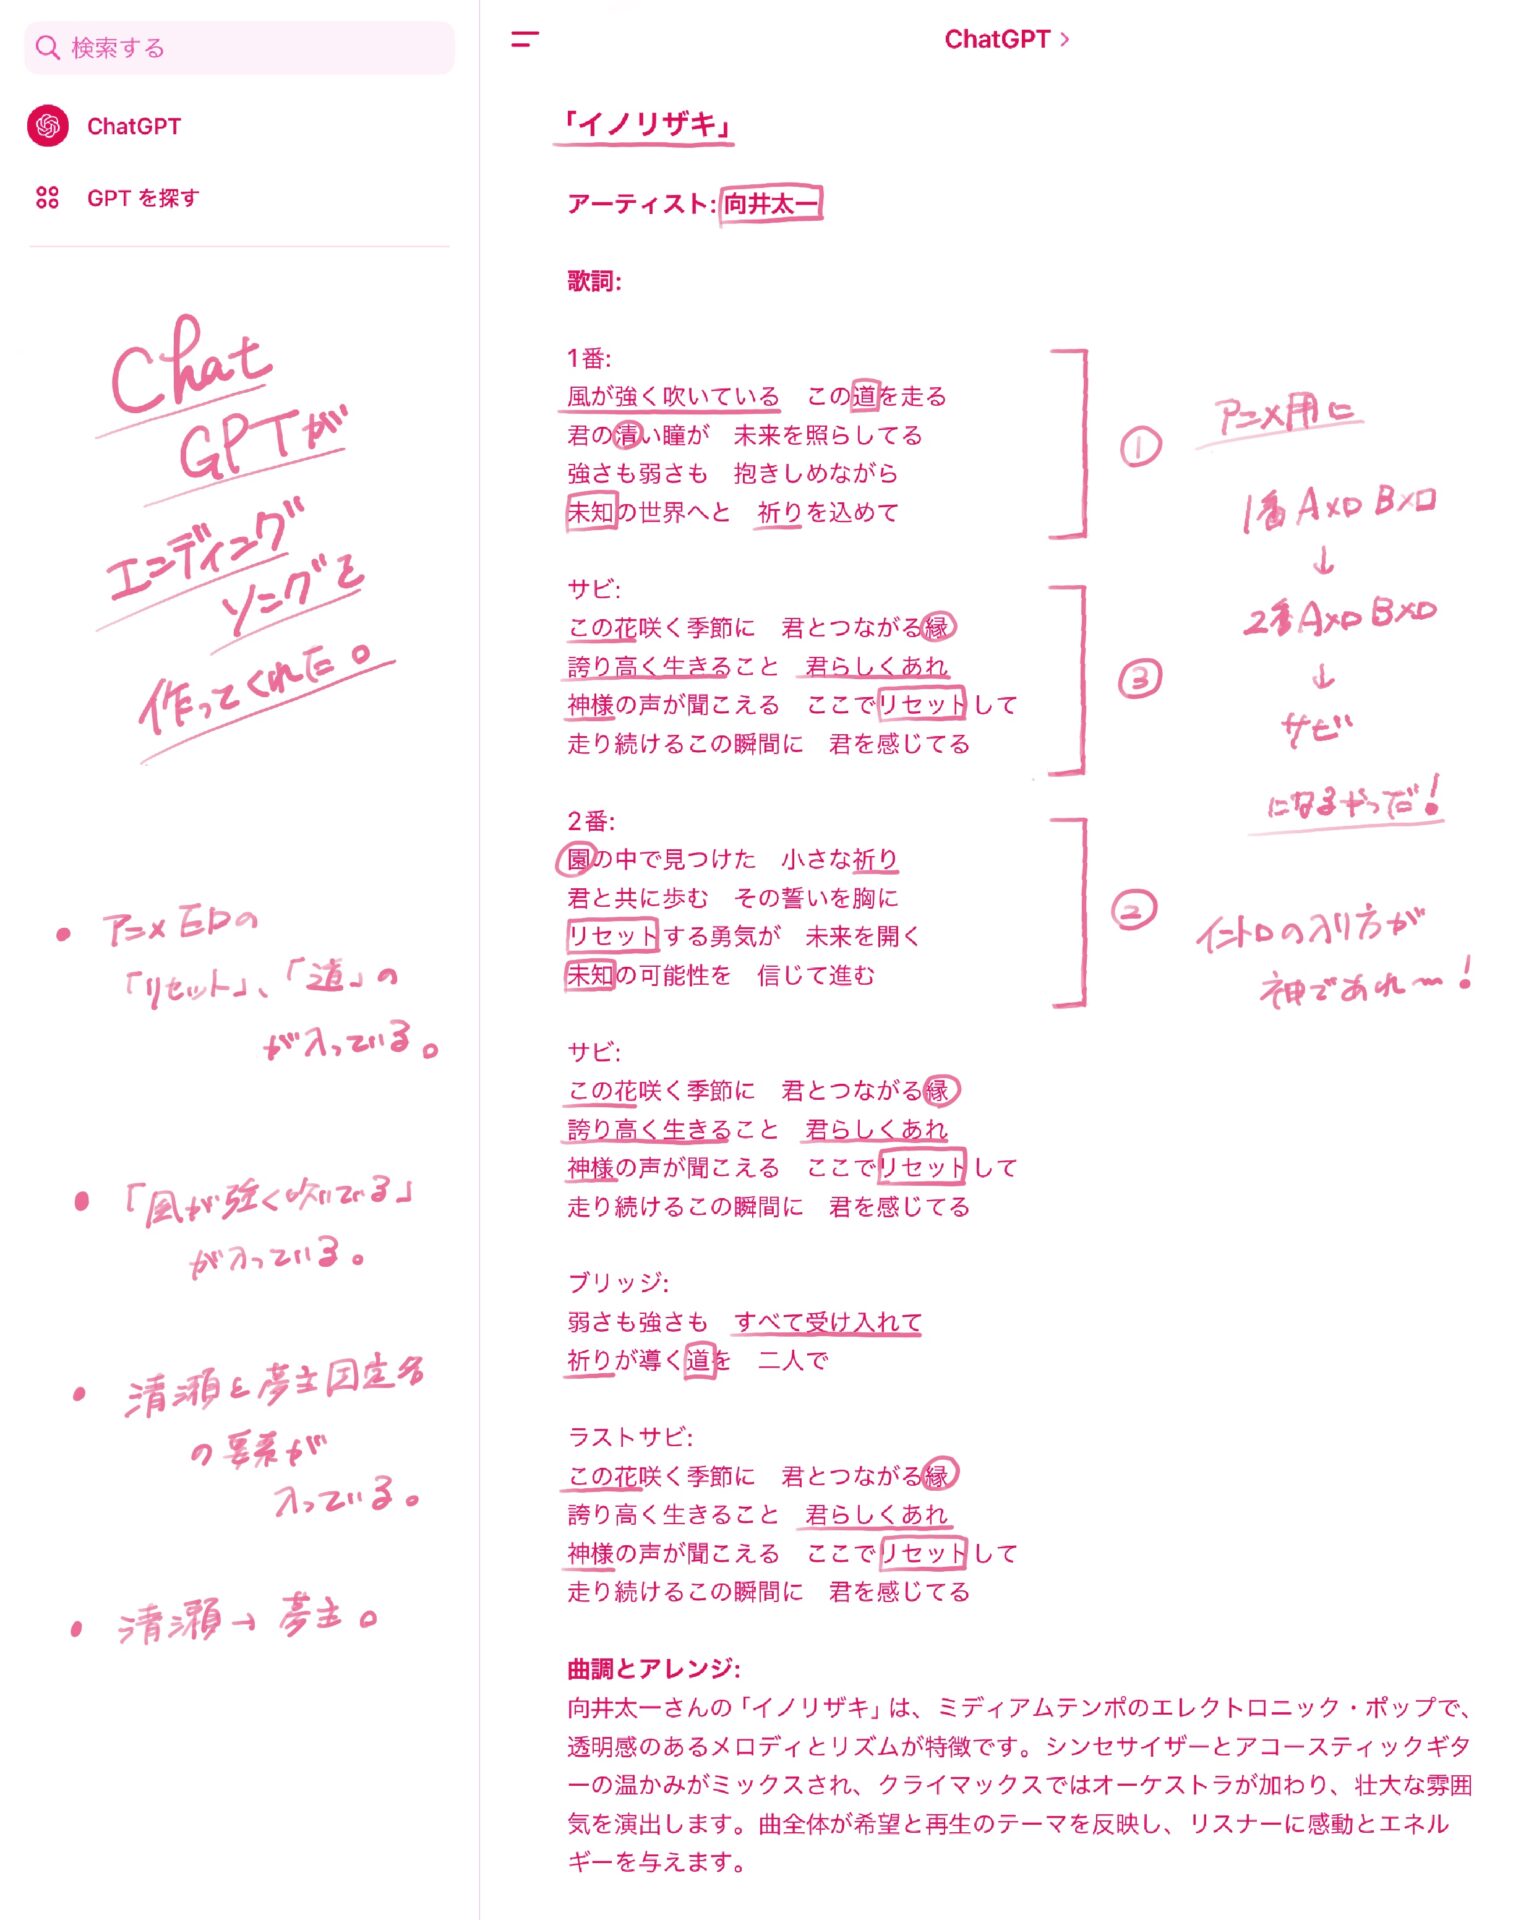 検索する
ChatGPT
GPT を探す
Chat
GPTが
エンディング
ソングを
作ってくれた。
・アニメEDの
「リセット」、「道」の
が入っている。
・「風が強く吹いてる」
が入っている。
・清瀬と夢主固定名
の要素が
入っている。
・清瀬→夢主。
ChatGPT >
「イノリザキ」
アーティスト: 向井太一
歌詞:
1番:
風が強く吹いている　この道を走る
君の清い瞳が　未来を照らしてる
強さも弱さも　抱きしめながら
未知の世界へと　祈りを込めて
サビ:
この花咲く季節に　君とつながる縁
誇り高く生きること　君らしくあれ
神様の声が聞こえる　ここでリセットして
走り続けるこの瞬間に　君を感じてる
2番:
園の中で見つけた　小さな祈り
君と共に歩む　その誓いを胸に
リセットする勇気が　未来を開く
未知の可能性を　信じて進む
サビ:
この花咲く季節に　君とつながる縁
誇り高く生きること　君らしくあれ
神様の声が聞こえる　ここでリセットして
走り続けるこの瞬間に　君を感じてる
ブリッジ:
弱さも強さも　すべて受け入れて
祈りが導く道を　二人で
ラストサビ:
この花咲く季節に　君とつながる縁
誇り高く生きること　君らしくあれ
神様の声が聞こえる　ここでリセットして
走り続けるこの瞬間に　君を感じてる
曲調とアレンジ:
向井太一さんの「イノリザキ」は、ミディアムテンポのエレクトロニック・ポップで、
透明感のあるメロディとリズムが特徴です。シンセサイザーとアコースティックギタ
ーの温かみがミックスされ、クライマックスではオーケストラが加わり、壮大な雰囲
気を演出します。曲全体が希望と再生のテーマを反映し、リスナーに感動とエネル
ギーを与えます。
①
③
②
アニメ用に
1番AメロBメロ
↓
2番AメロBメロ
↓
サビ
になるやつだ!
イントロの入り方が
神であれ〜!